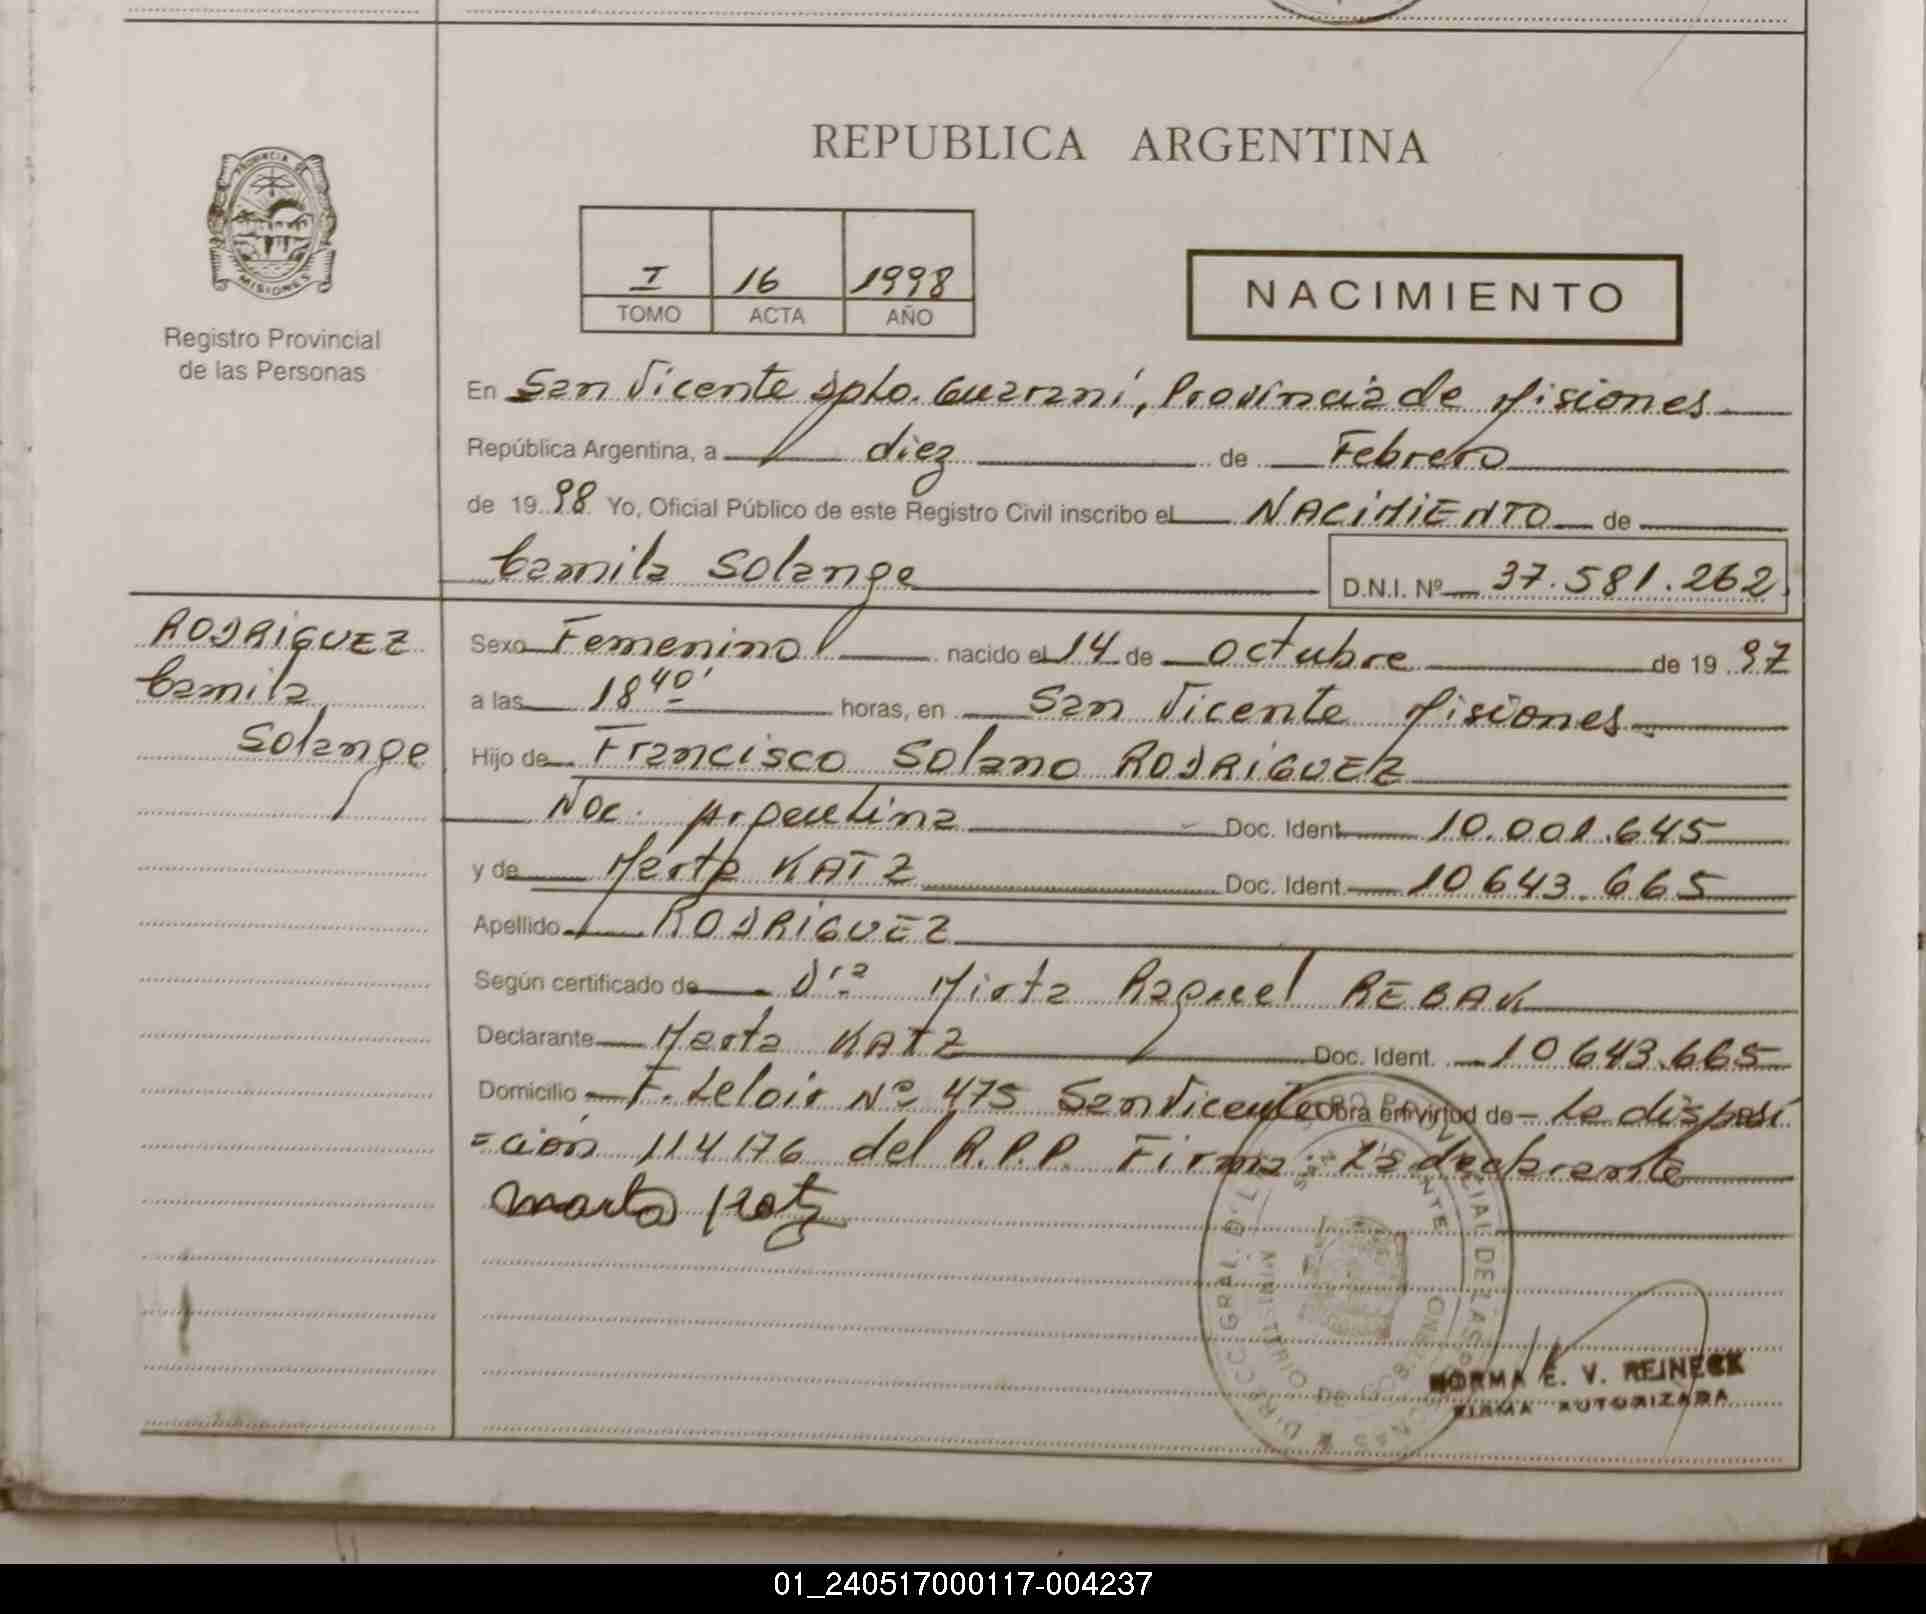 REPUBLICA ARGENTINA
PROVINCIA DE
MISIONES
Registro Provincial
de las Personas
I 16 1998
TOMO ACTA AÑO
NACIMIENTO
En San Vicente Dpto. Guaraní, Provincia de Misiones
República Argentina, a diez de Febrero
de 1998 Yo, Oficial Público de este Registro Civil inscribo el NACIMIENTO de
Camila Solange D.N.I. Nº 37.581.262
RODRIGUEZ
Camila
Solange
Sexo Femenino nacido el 14 de octubre de 1997
a las 18 40' horas, en San Vicente Misiones
Hijo de Francisco Solano RODRIGUEZ
Nac. Argentina Doc. Ident. 10.001.645
y de Marta KATZ Doc. Ident. 10643.665
Apellido RODRIGUEZ
Según certificado de Dra Mirta Raquel REBAK
Declarante Marta KATZ Doc. Ident. 10643.665
Domicilio F. Leloir Nº 475 San Vicente Obra en virtud de La disposi
=ción 114176 del R.P.P. Firma: La declarante
Marta Katz
NORMA E. V. REINECK
FIRMA AUTORIZADA
01_240517000117-004237